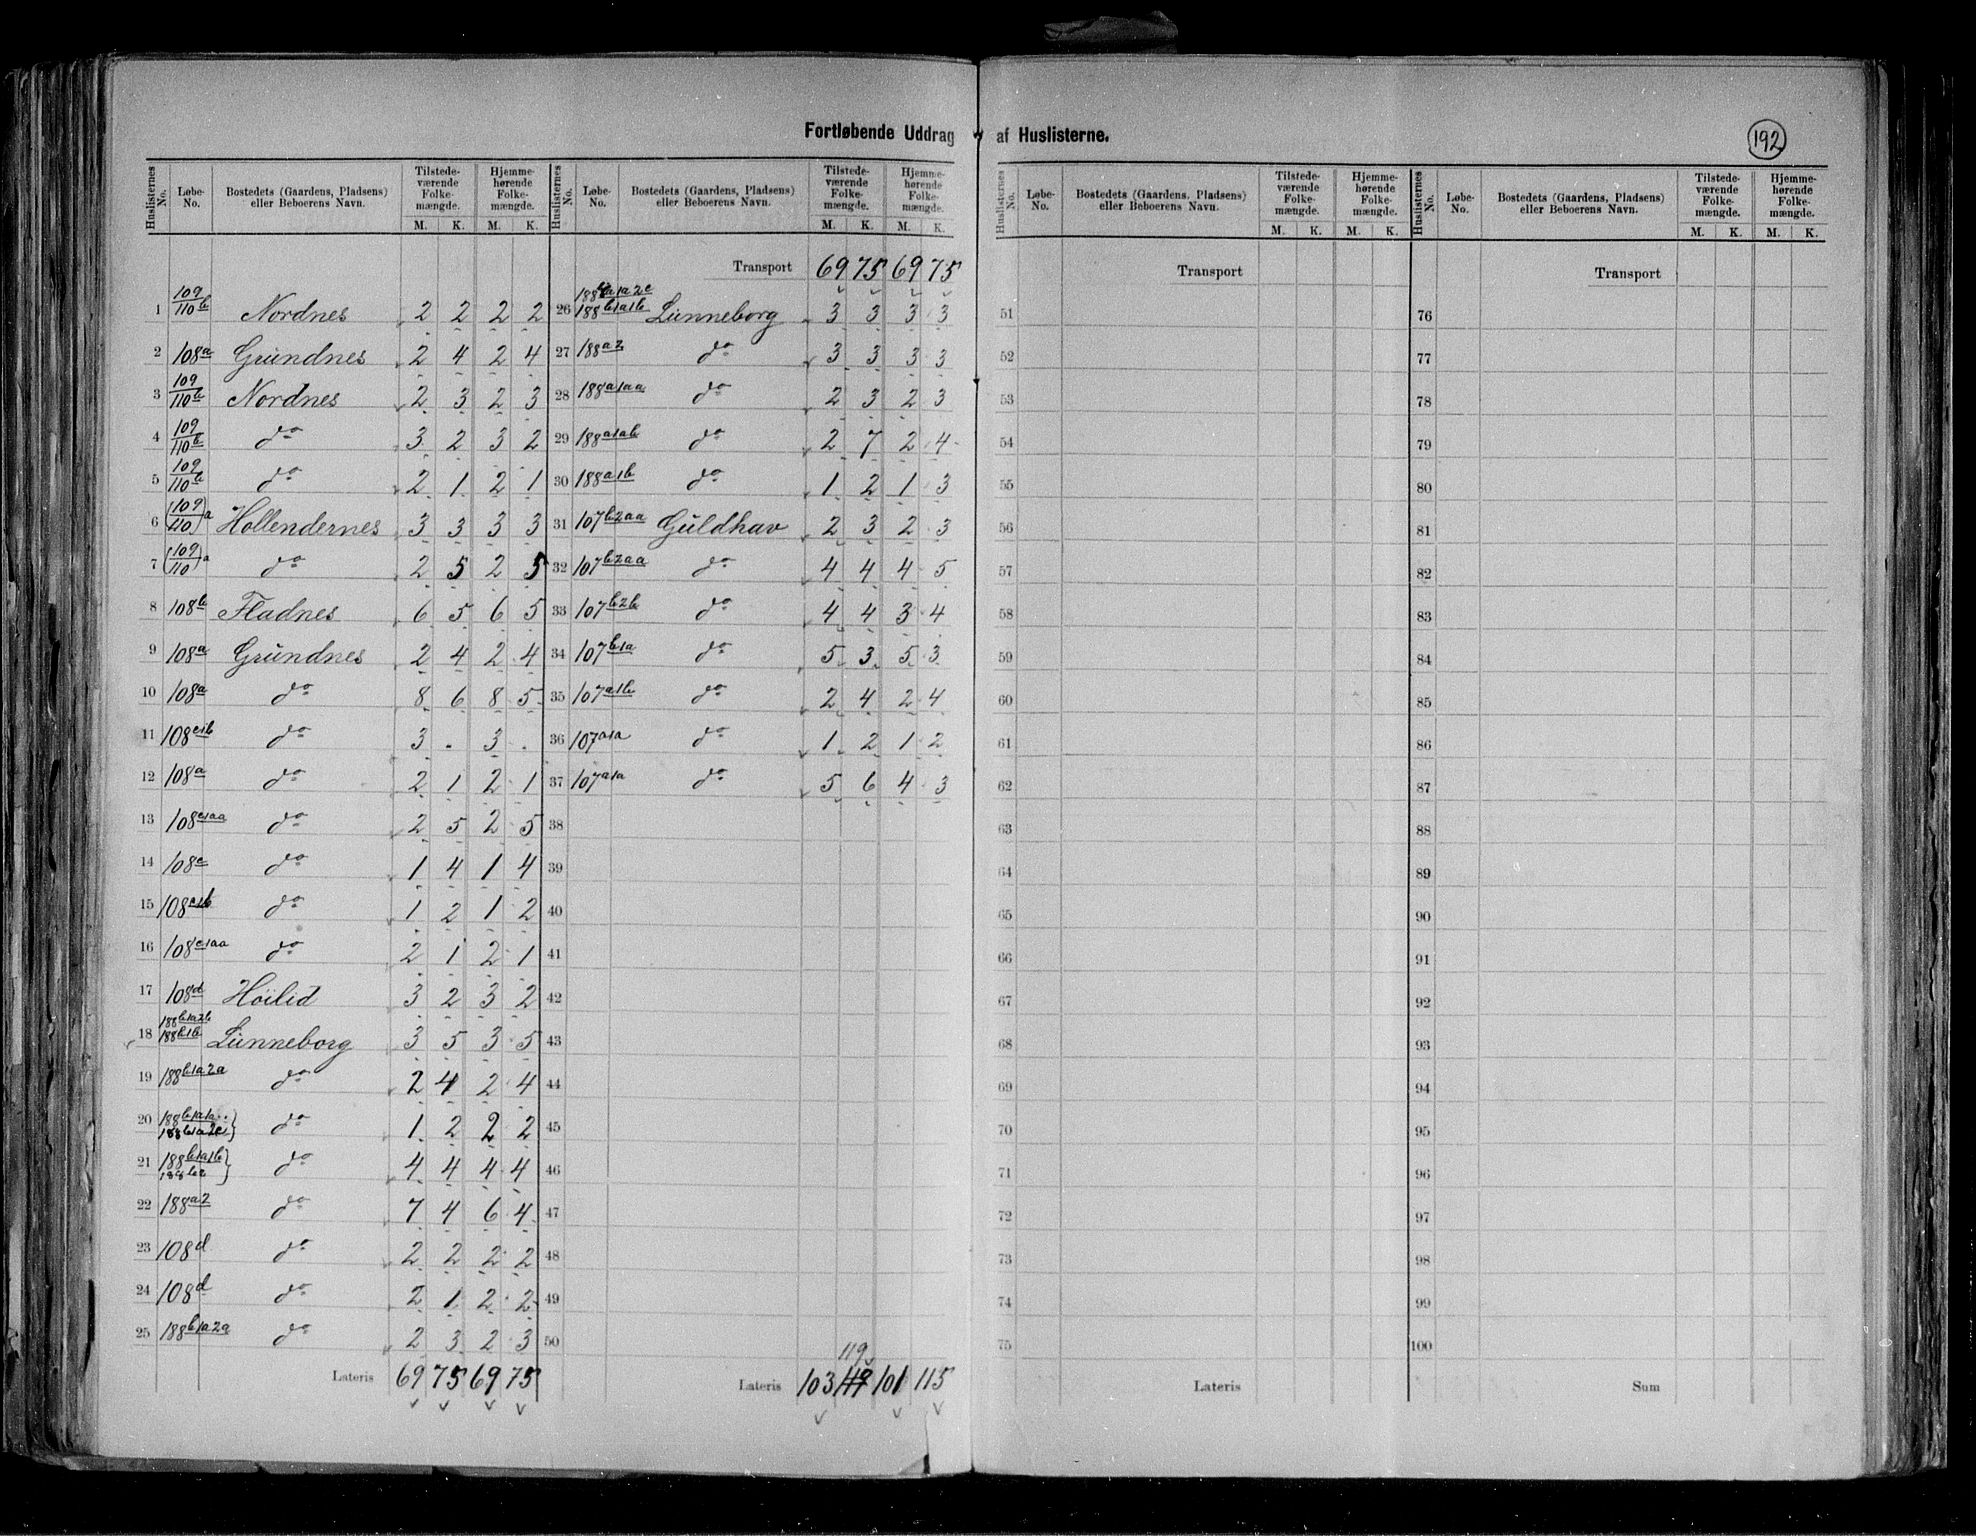 Fortløbende Uddrag af Huslisterne.
192
Huslisternes No. Løbe-No. Bostedets (Gaardens, Pladsens) eller Beboerens Navn. Tilstedeværende Folkemængde. M. K. Hjemmehørende Folkemængde. M. K.
1 109/110 b Nordnes 2 2 2 2
2 108a Grundnes 2 4 2 4
3 109/110 b Nordnes 2 3 2 3
4 109/110 b do 3 2 3 2
5 109/110 b do 2 1 2 1
6 (109/110)a Hollendernes 3 3 3 3
7 (109/110)a do 2 5 2 5
8 108b Fladnes 6 5 6 5
9 108a Grundnes 2 4 2 4
10 108a do 8 6 8 5
11 108c1b do 3 . 3 .
12 108a do 2 1 2 1
13 108c1aa do 2 5 2 5
14 108c do 1 4 1 4
15 108c1b do 1 2 1 2
16 108c1aa do 2 1 2 1
17 108d Höilid 3 2 3 2
18 188b1a2b 188b1b Lunneborg 3 5 3 5
19 188b1a2a do 2 4 2 4
20 188b1a1a 188b1a2c } do 1 2 2 2
21 188b1a1b 188b2 } do 4 4 4 4
22 188a2 do 7 4 6 4
23 108d do 2 2 2 2
24 108d do 2 1 2 2
25 188b1a2a do 2 3 2 3
Lateris 69 75 69 75
Huslisternes No. Løbe-No. Bostedets (Gaardens, Pladsens) eller Beboerens Navn. Tilstedeværende Folkemængde. M. K. Hjemmehørende Folkemængde. M. K.
Transport 69 75 69 75
26 188b1a2c 188b1a1b Lunneborg 3 3 3 3
27 188a2 do 3 3 3 3
28 188a1aa do 2 3 2 3
29 188a1ab do 2 7 2 4
30 188a1b do 1 2 1 3
31 107b2aa Guldhav 2 3 2 3
32 107b2aa do 4 4 4 5
33 107b2b do 4 4 3 4
34 107b1a do 5 3 5 3
35 107a1b do 2 4 2 4
36 107a1a do 1 2 1 2
37 107a1a do 5 6 4 3
38
39
40
41
42
43
44
45
46
47
48
49
50
119
Lateris 103 101 115
Huslisternes No. Løbe-No. Bostedets (Gaardens, Pladsens) eller Beboerens Navn. Tilstedeværende Folkemængde. M. K. Hjemmehørende Folkemængde. M. K.
Transport
51
52
53
54
55
56
57
58
59
60
61
62
63
64
65
66
67
68
69
70
71
72
73
74
75
Lateris
Huslisternes No. Løbe-No. Bostedets (Gaardens, Pladsens) eller Beboerens Navn. Tilstedeværende Folkemængde. M. K. Hjemmehørende Folkemængde. M. K.
Transport
76
77
78
79
80
81
82
83
84
85
86
87
88
89
90
91
92
93
94
95
96
97
98
99
100
Sum